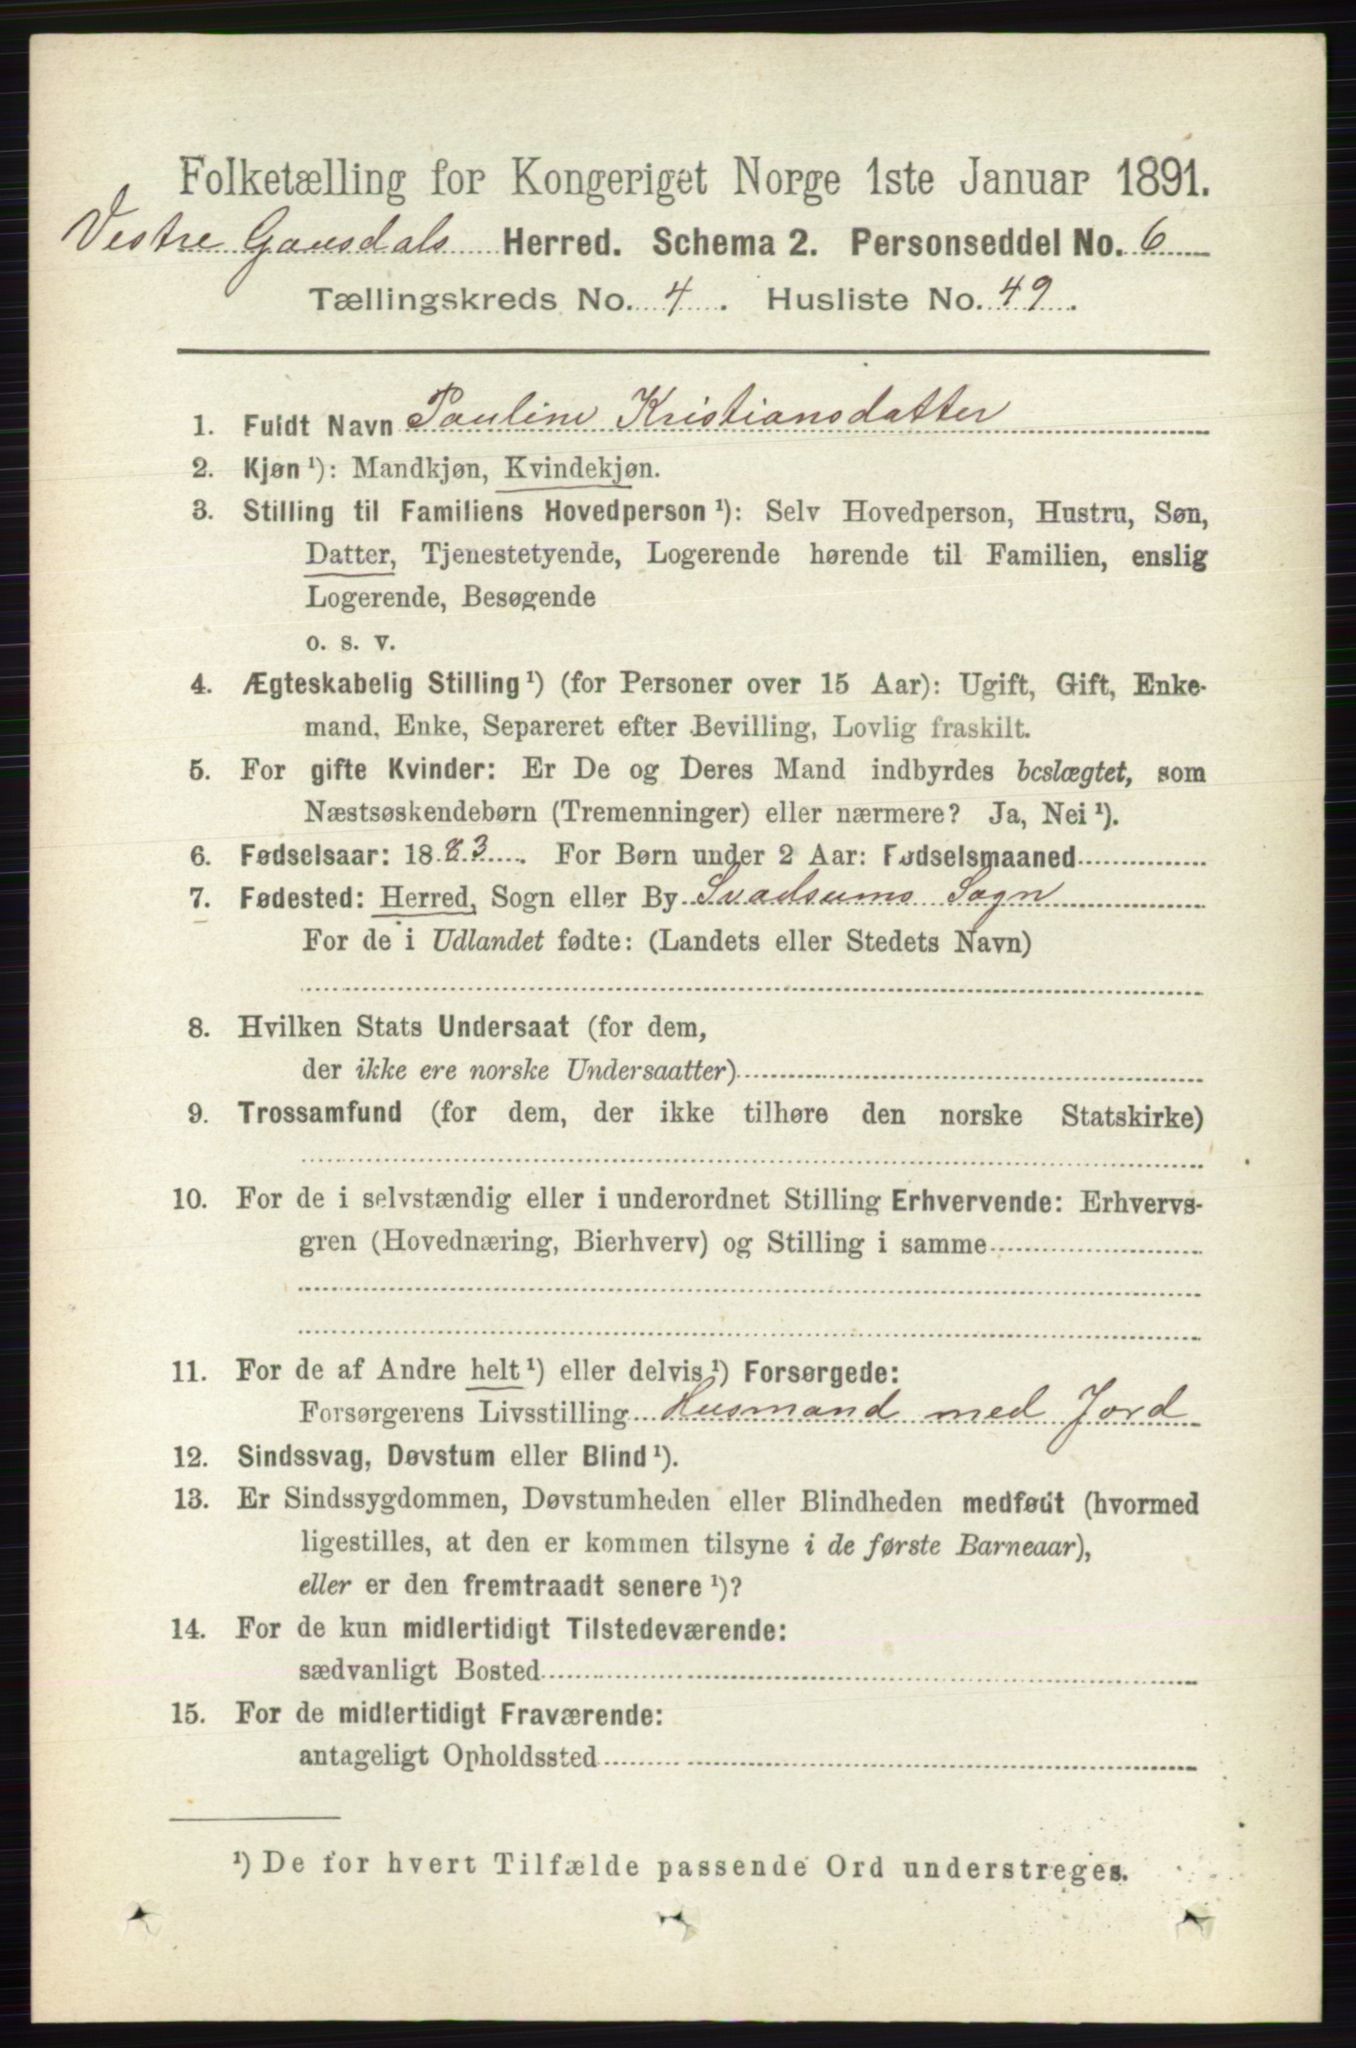 Folketælling for Kongeriget Norge 1ste Januar 1891.
Vestre Gausdals Herred. Schema 2. Personseddel No. 6
Tællingskreds No. 4. Husliste No. 49.
1. Fuldt Navn Pauline Kristiansdatter
2. Kjøn ¹): Mandkjøn, Kvindekjøn.
3. Stilling til Familiens Hovedperson ¹): Selv Hovedperson, Hustru, Søn,
Datter, Tjenestetyende, Logerende hørende til Familien, enslig
Logerende, Besøgende
o. s. v.
4. Ægteskabelig Stilling ¹) (for Personer over 15 Aar): Ugift, Gift, Enke-
mand, Enke, Separeret efter Bevilling, Lovlig fraskilt.
5. For gifte Kvinder: Er De og Deres Mand indbyrdes beslægtet, som
Næstsøskendebørn (Tremenninger) eller nærmere? Ja, Nei ¹).
6. Fødselsaar: 1883. For Børn under 2 Aar: Fødselsmaaned
7. Fødested: Herred, Sogn eller By Svadsums Sogn
For de i Udlandet fødte: (Landets eller Stedets Navn)
8. Hvilken Stats Undersaat (for dem,
der ikke ere norske Undersaatter)
9. Trossamfund (for dem, der ikke tilhøre den norske Statskirke)
10. For de i selvstændig eller i underordnet Stilling Erhvervende: Erhvervs-
gren (Hovednæring, Bierhverv) og Stilling i samme
11. For de af Andre helt ¹) eller delvis ¹) Forsørgede:
Forsørgerens Livsstilling Husmand med Jord
12. Sindssvag, Døvstum eller Blind ¹).
13. Er Sindssygdommen, Døvstumheden eller Blindheden medfødt (hvormed
ligestilles, at den er kommen tilsyne i de første Barneaar),
eller er den fremtraadt senere ¹)?
14. For de kun midlertidigt Tilstedeværende:
sædvanligt Bosted
15. For de midlertidigt Fraværende:
antageligt Opholdssted
¹) De for hvert Tilfælde passende Ord understreges.